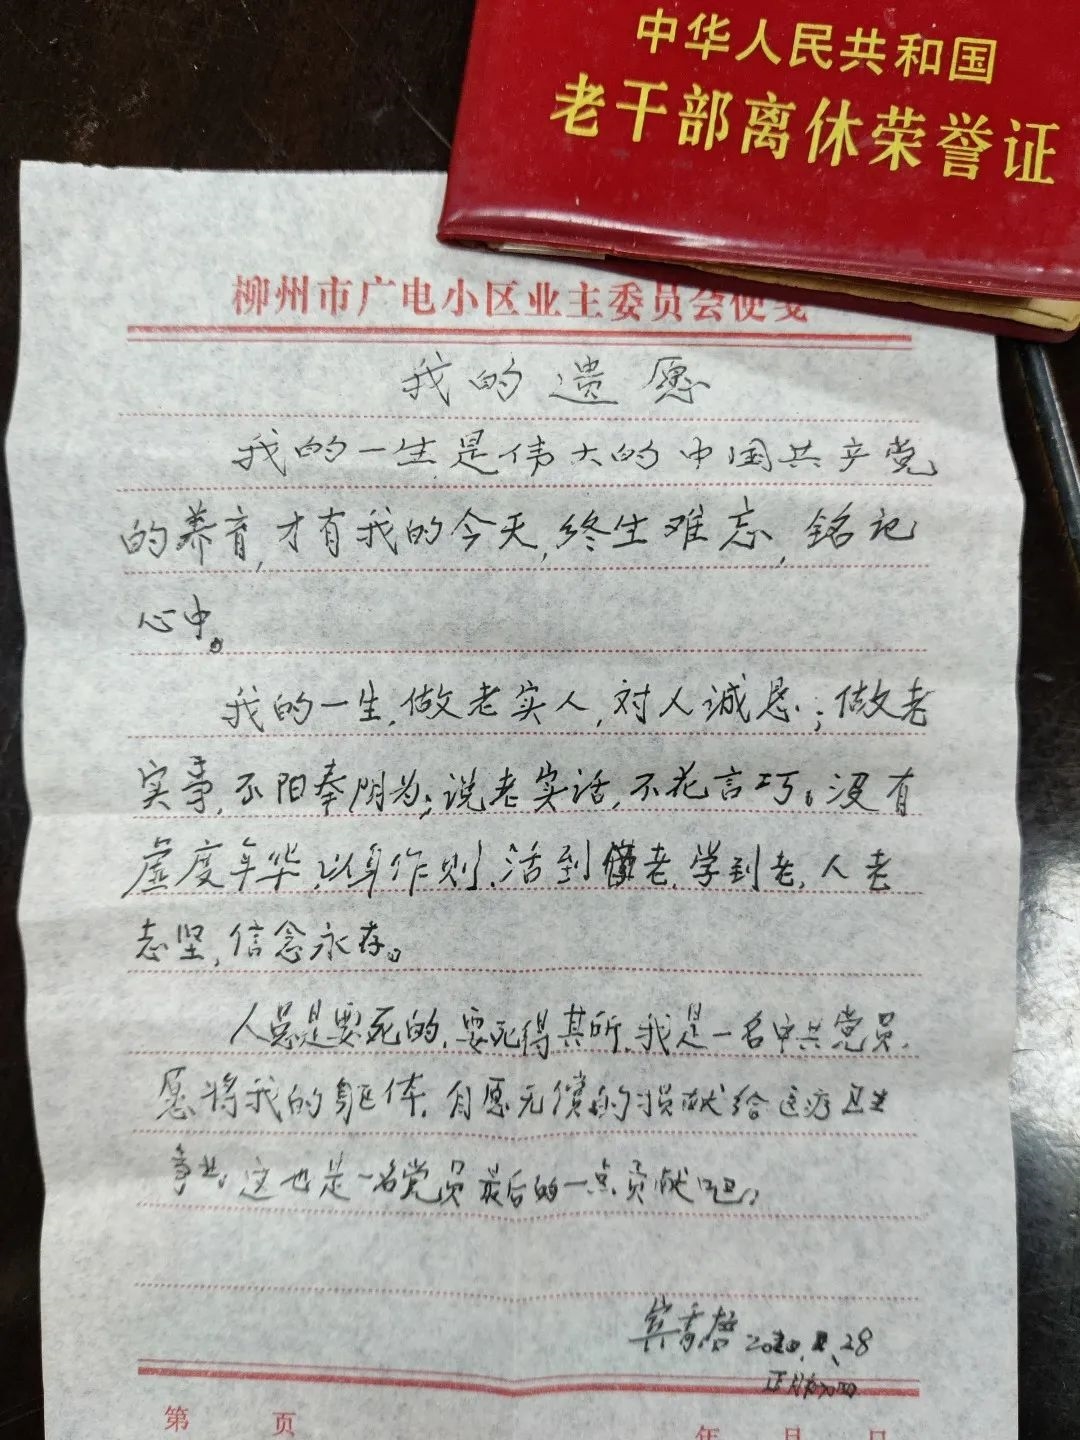 中华人民共和国
老干部离休荣誉证
柳州市广电小区业主委员会便笺
我的遗愿
我的一生是伟大的中国共产党
的养育,才有我的今天,终生难忘,铭记
心中。
我的一生,做老实人,对人诚恳;做老
实事,不阳奉阴为;说老实话,不花言巧。没有
虚度年华,以身作则,活到老,学到老,人老
志坚,信念永存。
人总是要死的,要死得其所,我是一名中共党员,
愿将我的躯体,自愿无偿的损献给医疗卫生
事业,这也是一名党员最后的一点贡献吧,
28
第 页 年 月 日